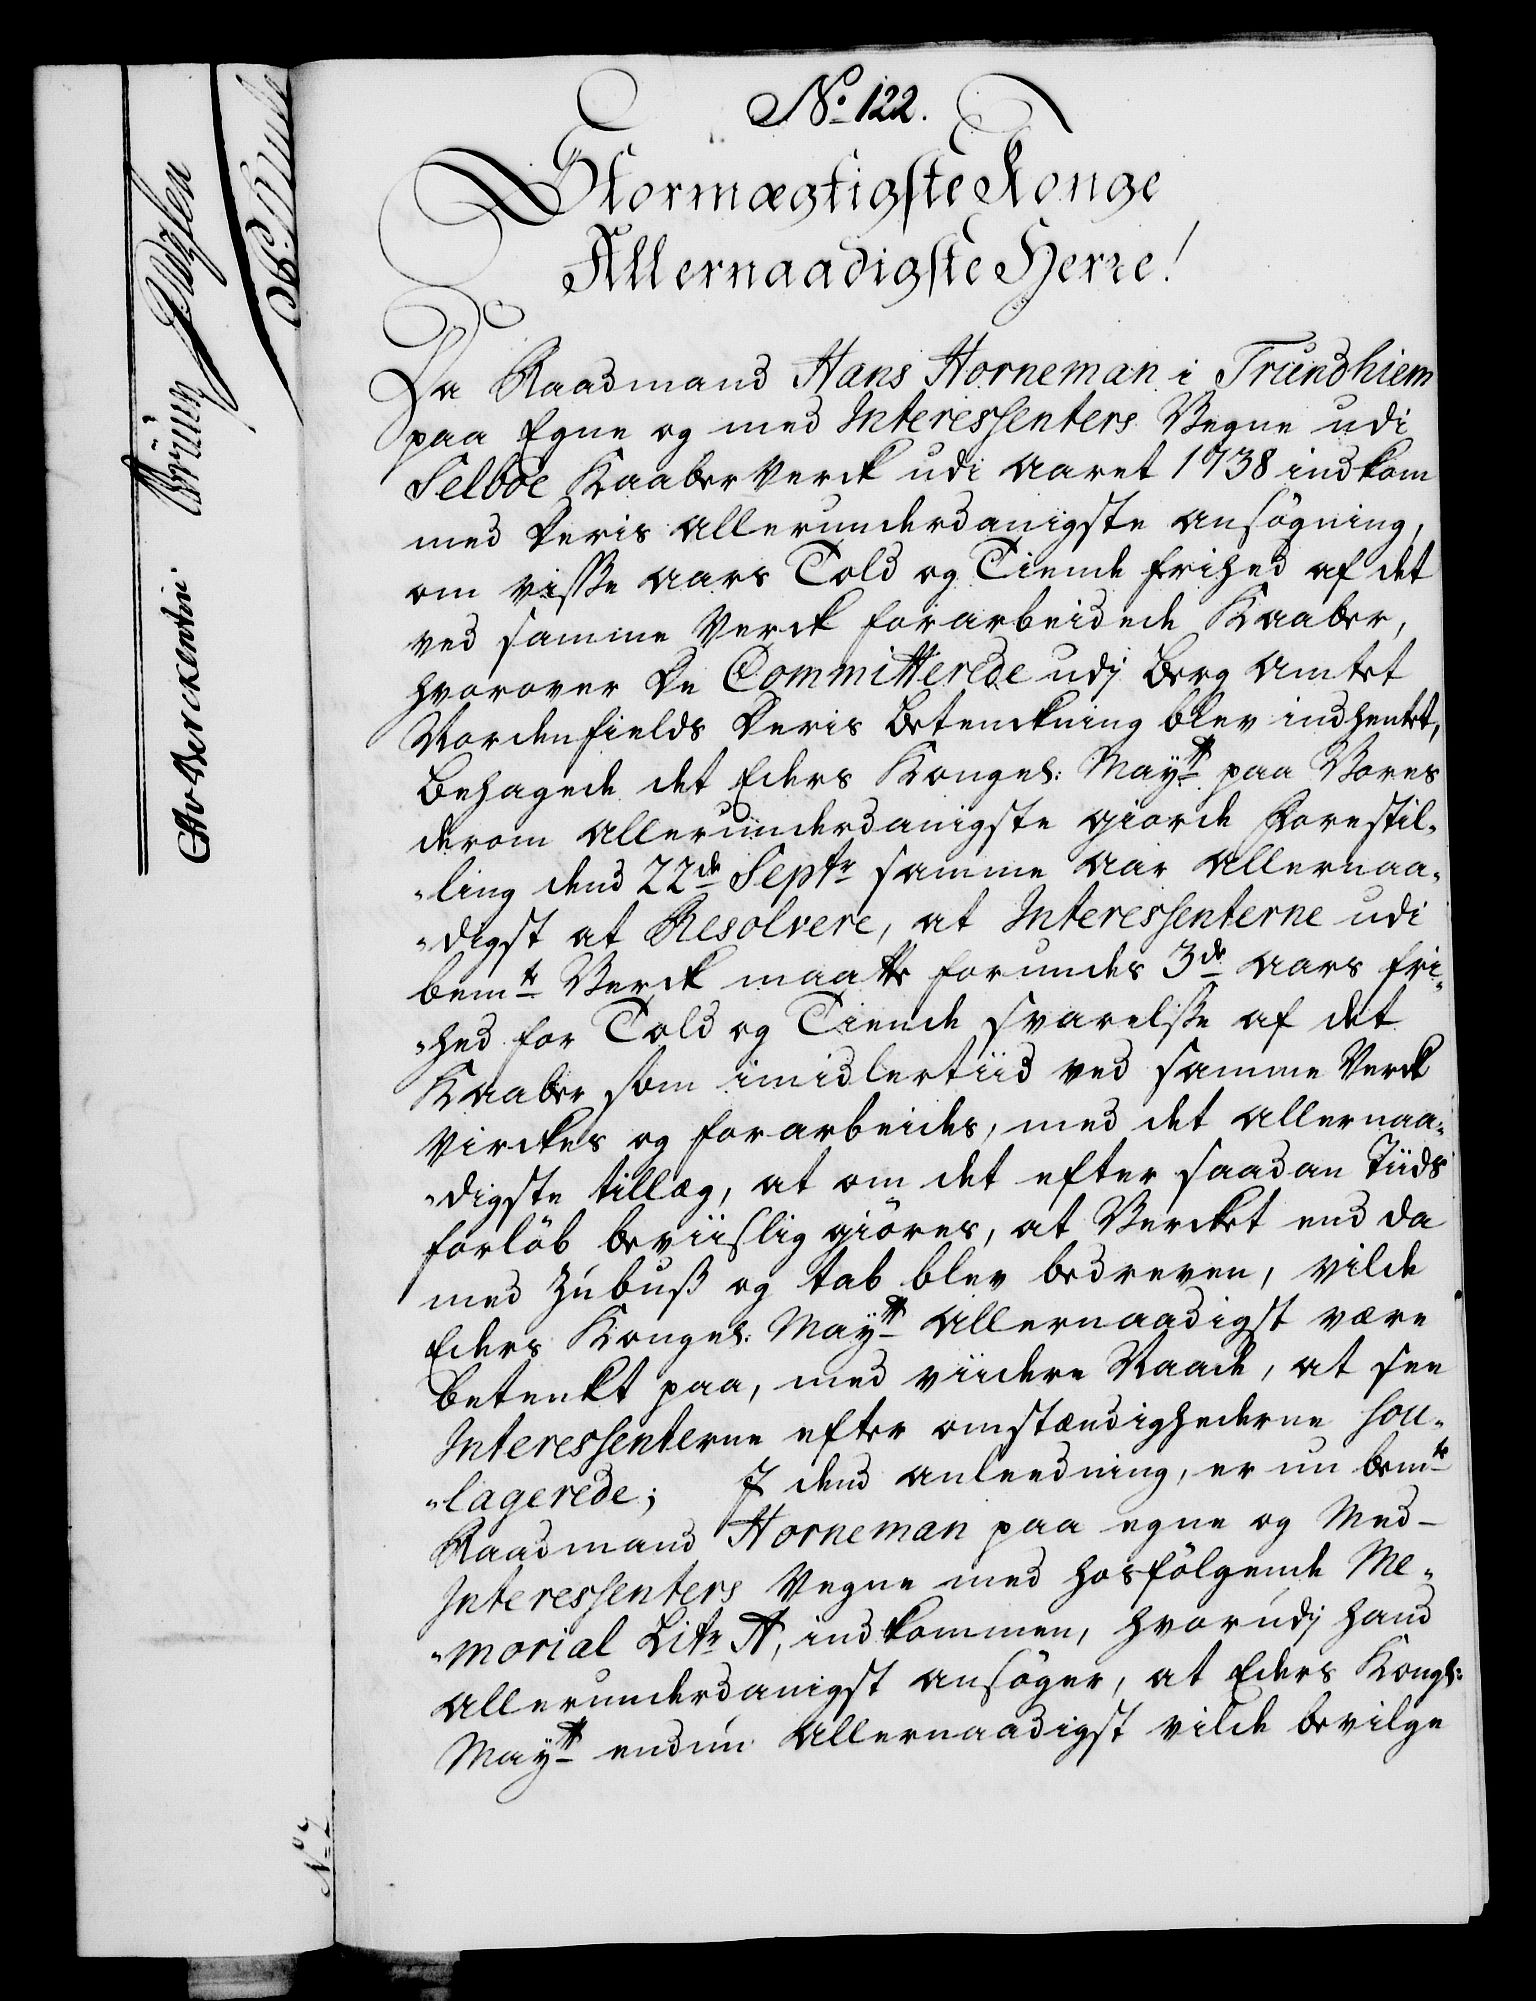 No. 122.
Stormægtigste Konge
Allernaadigste Herre!
Da Raadmand Hans Horneman i Trundhiem
paa Egne og med Interessenters Vegne udi
Selboe Kaaber Verck udi Aaret 1738 indkom
med Deris Allerunderdanigste Ansögning,
om visse Aars Told og Tiende frihed af det
ved samme Verck forarbeidede Kaaber,
hvorover De Committerede udj Berg Amtet
Nordenfields Deris Betenckning blev indhentet,
Behagede det Eders Kongel: Maytt paa Vores
derom Allerunderdanigste giorde Forestil-
-ling dend 22de Septr samme Aar Allernaa-
-digst at Resolvere, at Interessenterne udi
bemte Verck maatte forundes 3de Aars fri-
-hed for Told og Tiende svarelsse af det
Kaaber, som imidlertiid ved samme Verck
Virckes og forarbeides, med det Allernaa-
-digste tillæg, at om det efter saadan Tiids
forlöb beviislig giöres, at Vercket end da
med Zubuß og tab blev bedreven, vilde
Eders Kongel: Maytt Allernaadigst være
betenkt paa, med viidere Naade, at see
Interessenterne efter omstændighederne sou-
-lagerede; J dend anleedning, er nu bemte
Raadmand Horneman paa egne og Med-
Interessenters Vegne med hosfölgende Me-
-morial Litr A, indkommen, hvorudj hand
Allerunderdanigst ansöger, at Eders Kongl:
Maytt endnu Allernaadigst vilde bevilge
CAvBerckentin